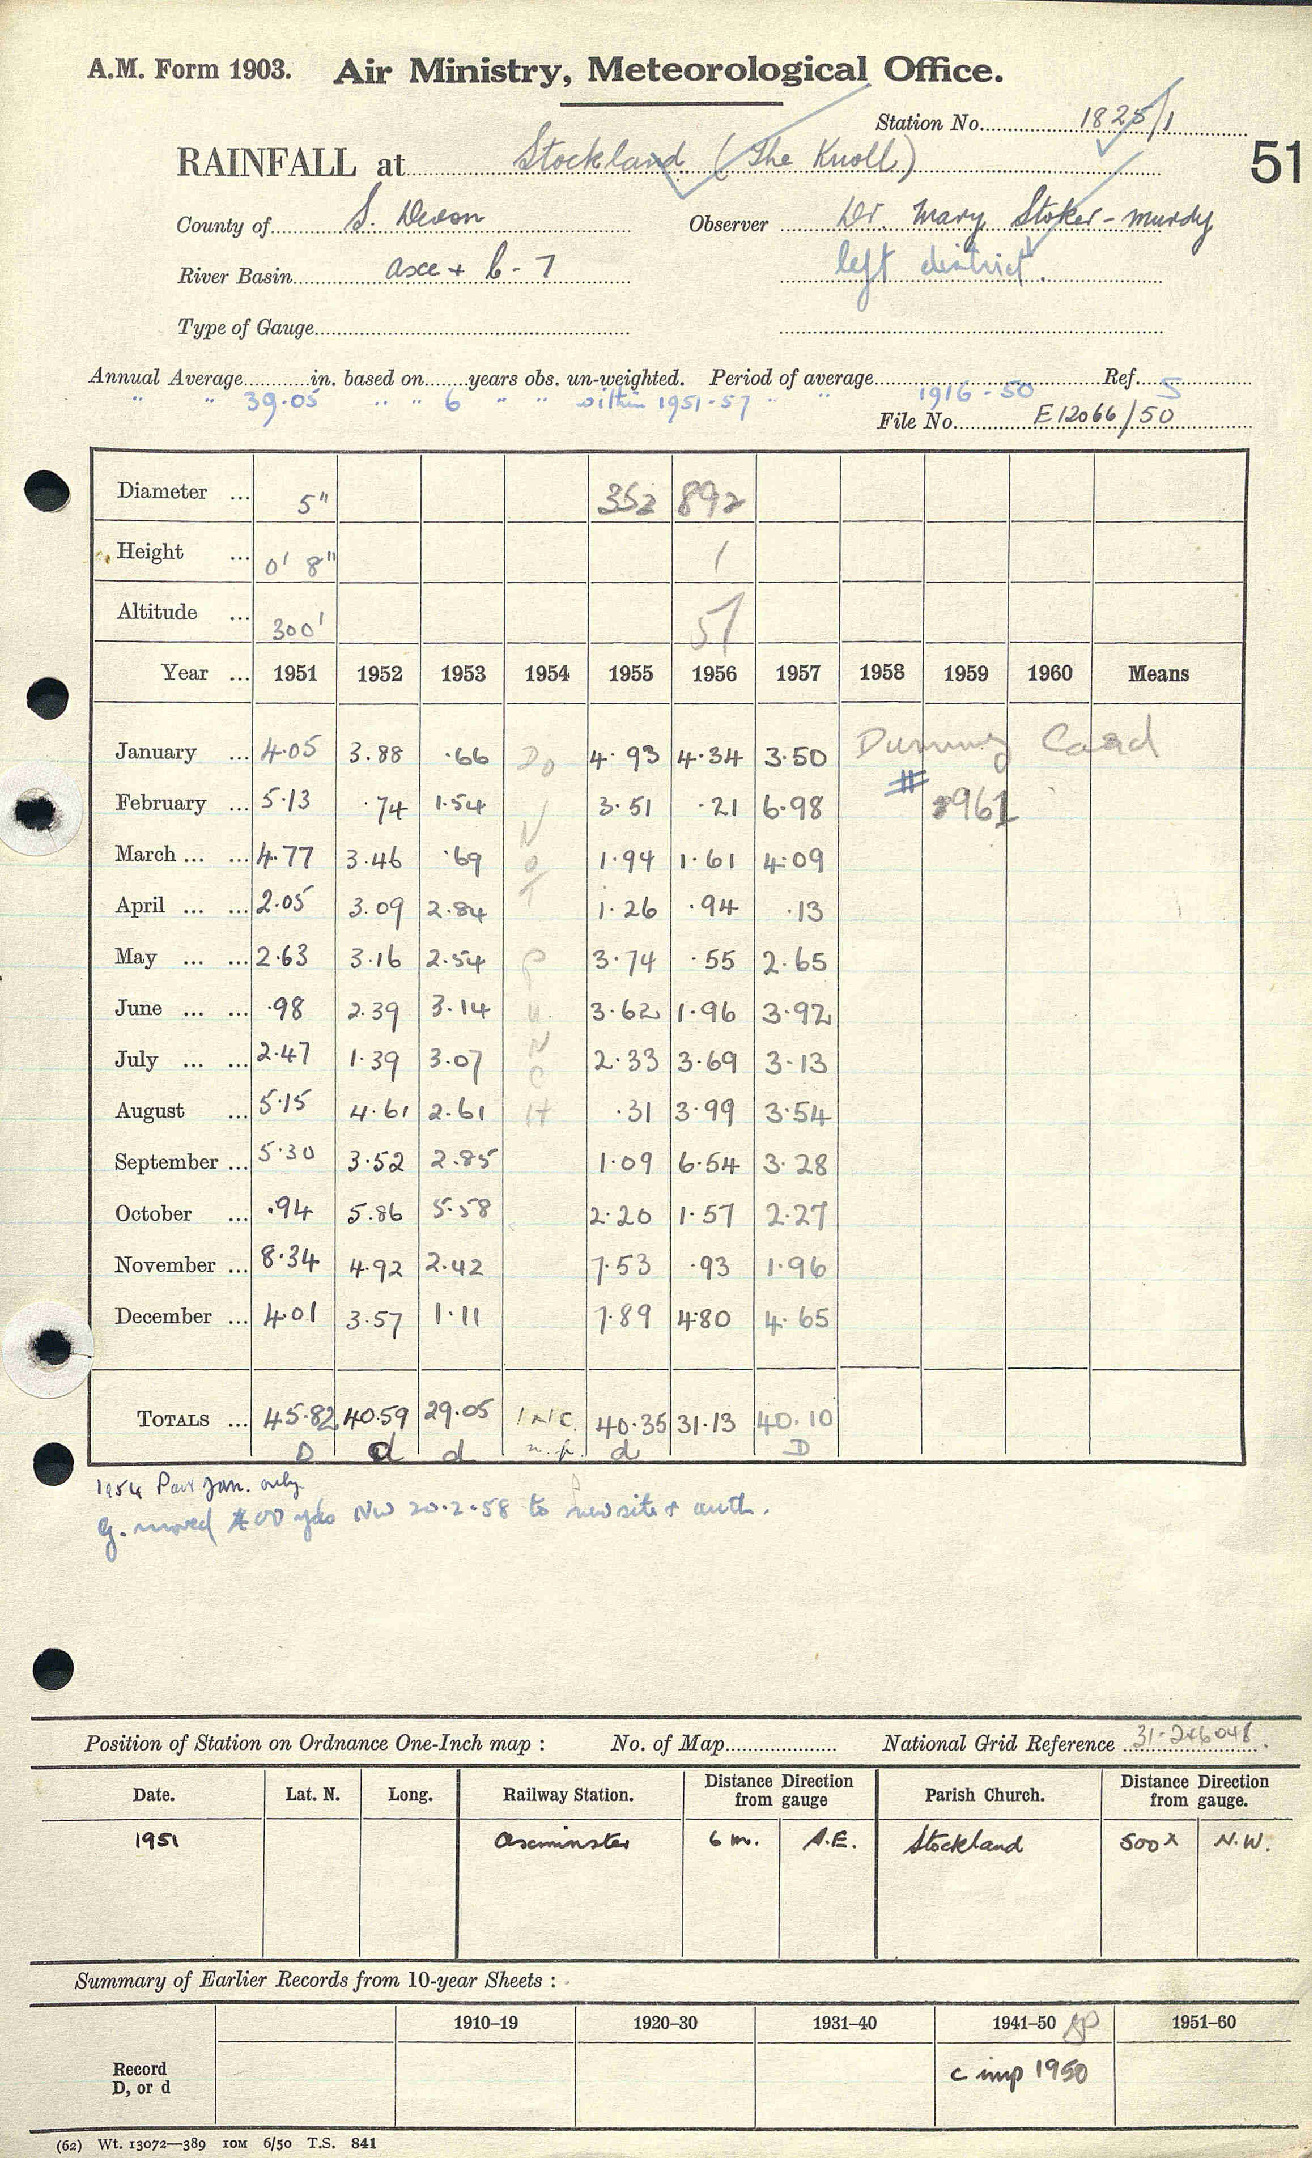 A.M. Form 1903. Air Ministry, Meteorological Office.
Station No. 1825/1
RAINFALL at Stockland (The Knoll)
51
County of S. Devon Observer Dr. Mary Stoker-Murdy
River Basin Axe + 6-7 left district.
Type of Gauge
Annual Average in. based on years obs. un-weighted. Period of average Ref. S
" " 39.05 " " 6 " " within 1951-57 " " 1916-50
File No. E12066/50
Diameter ... 5" 352 892
Height ... 0' 8" 1
Altitude ... 300' 51
Year ... 1951 1952 1953 1954 1955 1956 1957 1958 1959 1960 Means
January ... 4.05 3.88 .66 DO 4.93 4.34 3.50 Dummy Card
February ... 5.13 .74 1.54 NOT 3.51 .21 6.98 # 1961
March ... ... 4.77 3.46 .69 1.94 1.61 4.09
April ... ... 2.05 3.09 2.84 1.26 .94 .13
May ... ... 2.63 3.16 2.54 PUNCH 3.74 .55 2.65
June ... ... .98 2.39 3.14 3.62 1.96 3.92
July ... ... 2.47 1.39 3.07 2.33 3.69 3.13
August ... 5.15 4.61 2.61 .31 3.99 3.54
September ... 5.30 3.52 2.85 1.09 6.54 3.28
October ... .94 5.86 5.58 2.20 1.57 2.27
November ... 8.34 4.92 2.42 7.53 .93 1.96
December ... 4.01 3.57 1.11 7.89 4.80 4.65
TOTALS ... 45.82 40.59 29.05 INC. 40.35 31.13 40.10
D d d n.p. d D
1954 Pax Jan. only
G. moved 400 yds NW 20.2.58 to new site & auth.
Position of Station on Ordnance One-Inch map : No. of Map National Grid Reference 31-246048
Date. Lat. N. Long. Railway Station. Distance Direction from gauge Parish Church. Distance Direction from gauge.
1951 Axminster 6 m. A.E. Stockland 500x N.W.
Summary of Earlier Records from 10-year Sheets :
1910–19 1920–30 1931–40 1941–50 1951–60
Record D, or d c imp 1950
(62) Wt. 13072—389 10M 6/50 T.S. 841